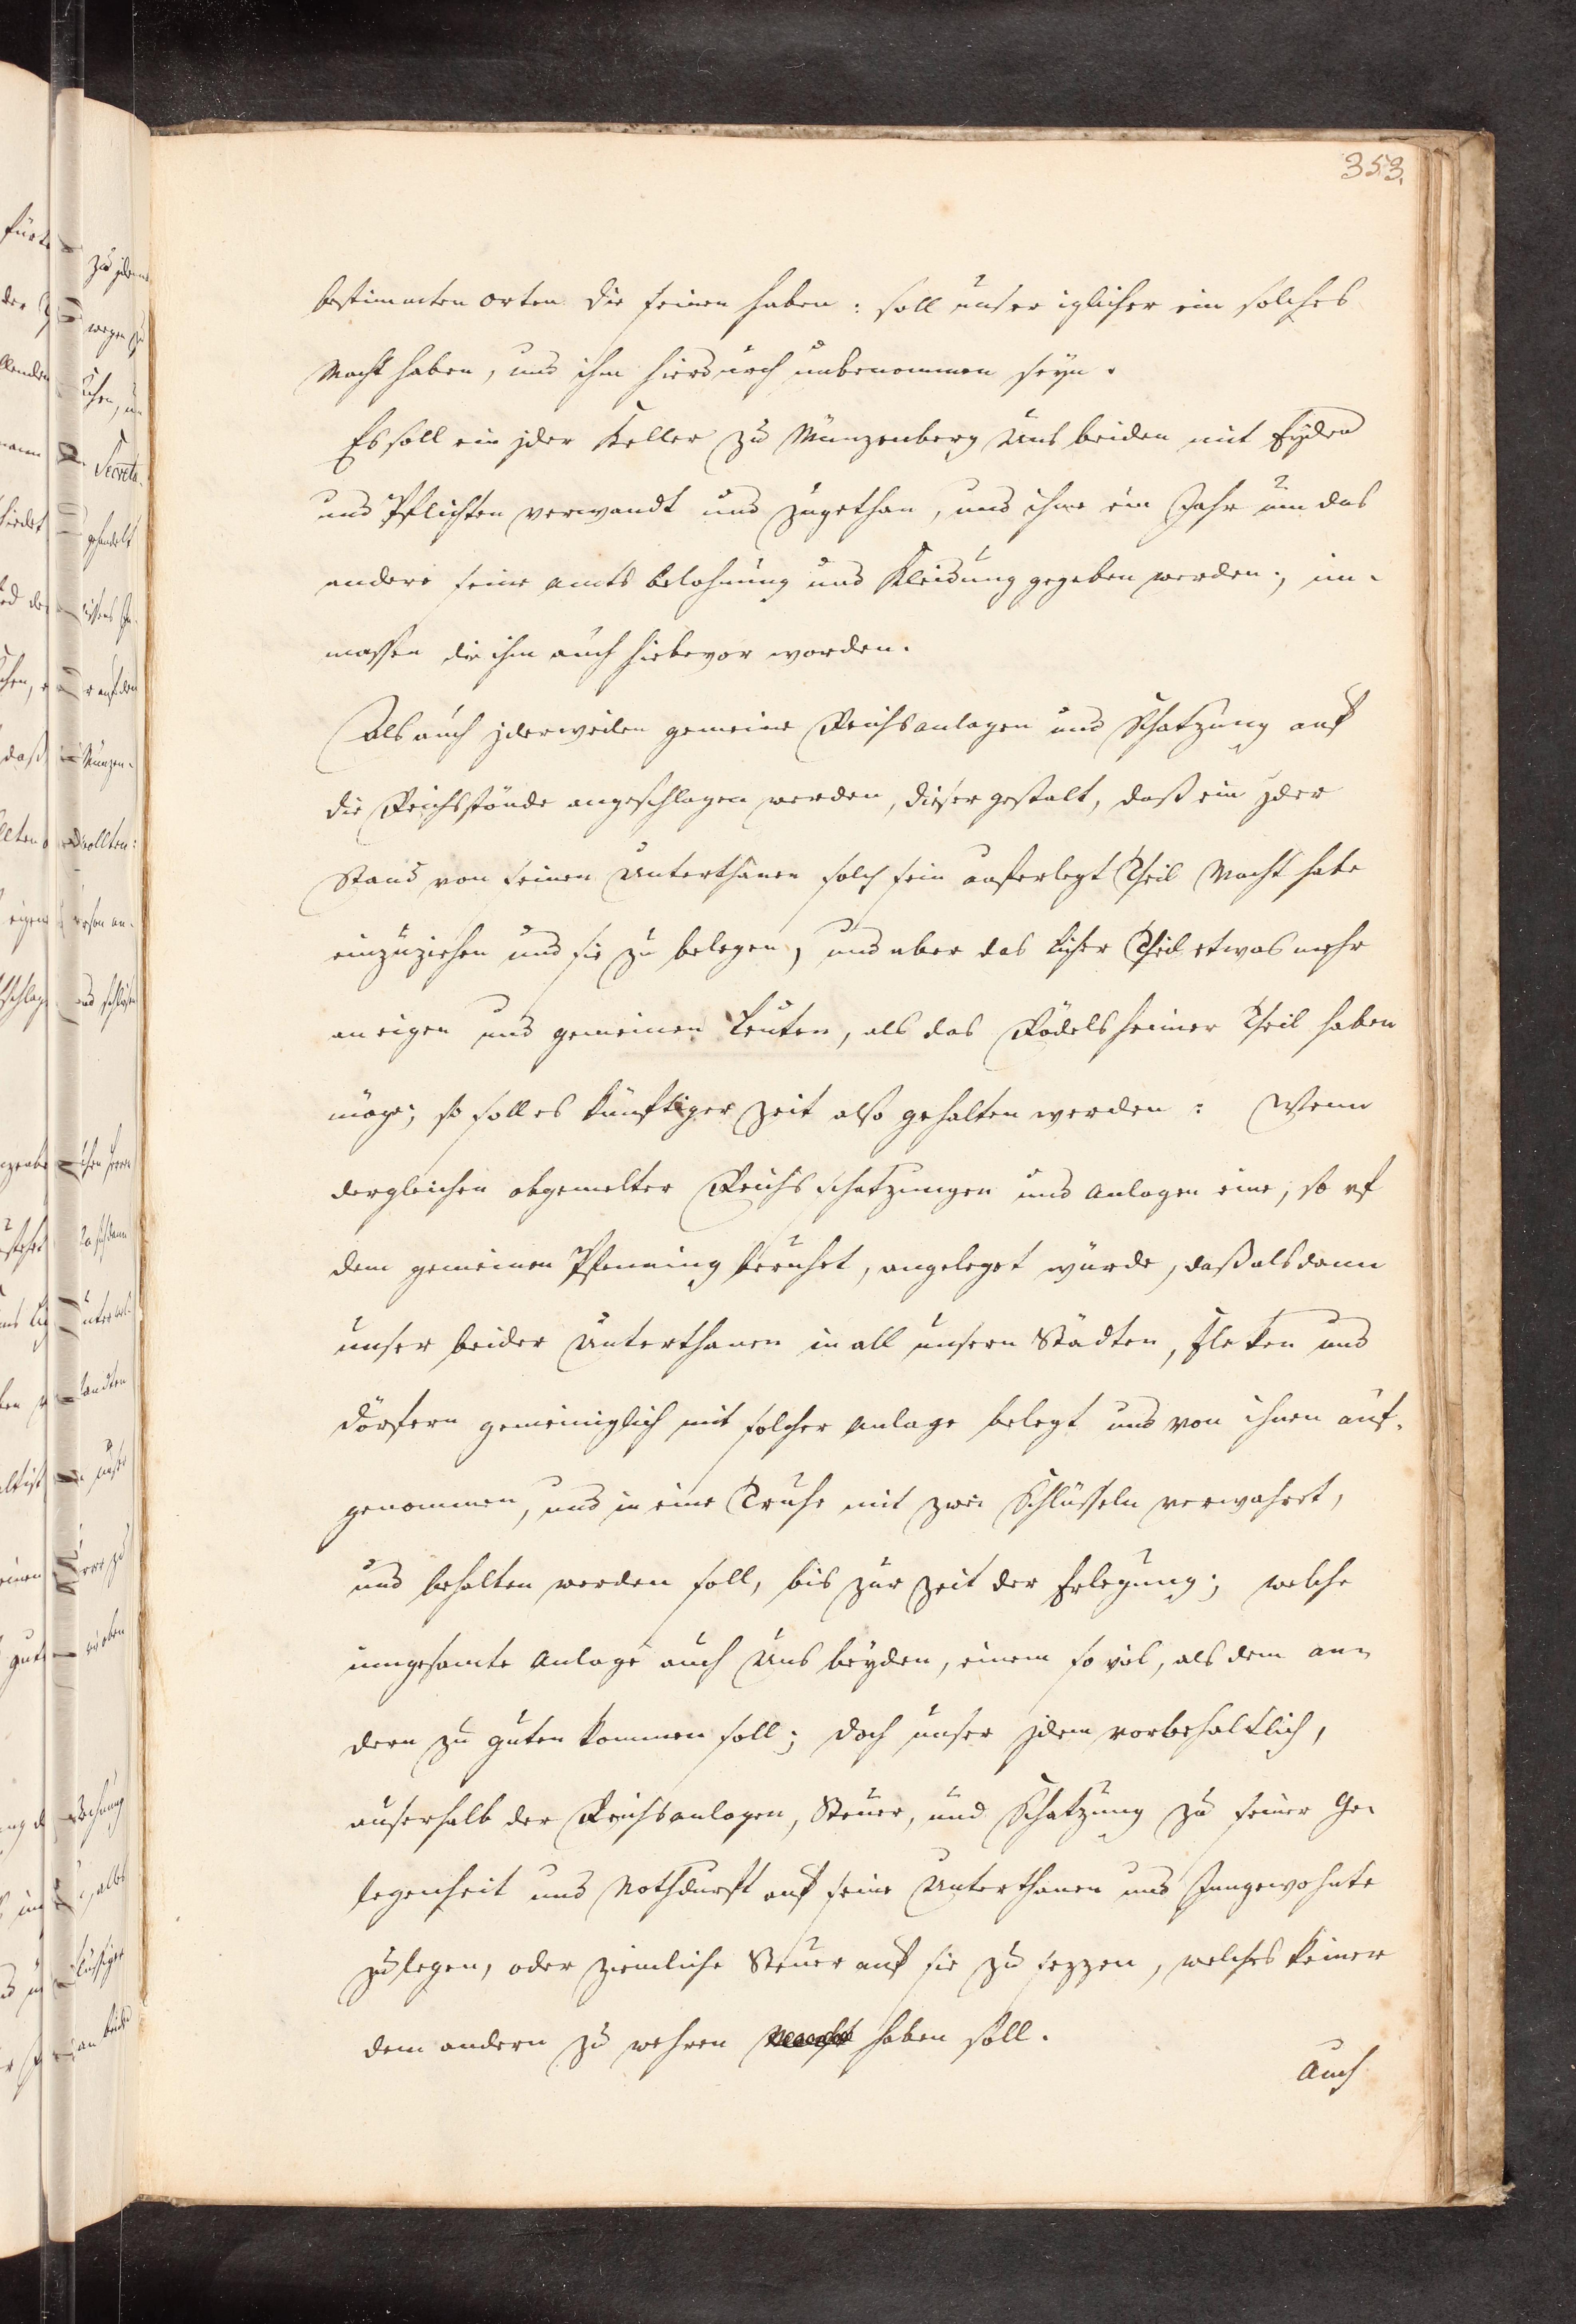 353.
bestimmten orten die seinen haben: soll unser iglicher ein solches
Macht haben, und ihm hierdurch unbenommen seyn.
Es soll ein jder Keller zu Münzenberg Uns beiden mit Eyden
und Pflichten verwandt und zugethan, und ihme ein Jahr um das
andere seine amts belohnung und Kleidung gegeben werden; im-
massen die ihm auch hiebevor worden.
Als auch jderweilen gemeine Reichsanlagen und Schatzung auf
die Reichsstände angeschlagen werden, dieser gestalt, daß ein jder
Stand von seinen Unterthanen solch sein auferlegt Theil Macht habe
einzuziehen und sie zu belegen, und aber das licher Theil etwas mehr
an eigen und gemeinen Leuten, als das Rödelsheimer Theil haben
möge; so soll es künftiger Zeit also gehalten werden: Wenn
dergleichen obgemelter Reichsschatzungen und Anlagen eine, so uf
dem gemeinen Pfenning beruhet, angeleget würde, daß alsdann
unser beider Unterthanen in all unsern Städten, Fleken und
dörfern gemeiniglich mit solcher Anlage belegt und von ihnen auf-
genommen, und in eine Truhe mit zwei Schlüsseln verwahret,
und behalten werden soll, bis zur Zeit der Erlegung; welche
inngesamte Anlage auch Uns beyden, einem so vil, als dem an-
dern zu guten kommen soll; doch unser jdem vorbehaltlich,
auserhalb der Reichsanlagen, Steuer, und Schatzung zu seiner Ge-
legenheit und Nothdurft auf seine Unterthanen und Inngewohnte
zu legen, oder ziemliche Steuer auf sie zu sezzen, welches keiner
dem andern zu wehren Macht haben soll.
Auch